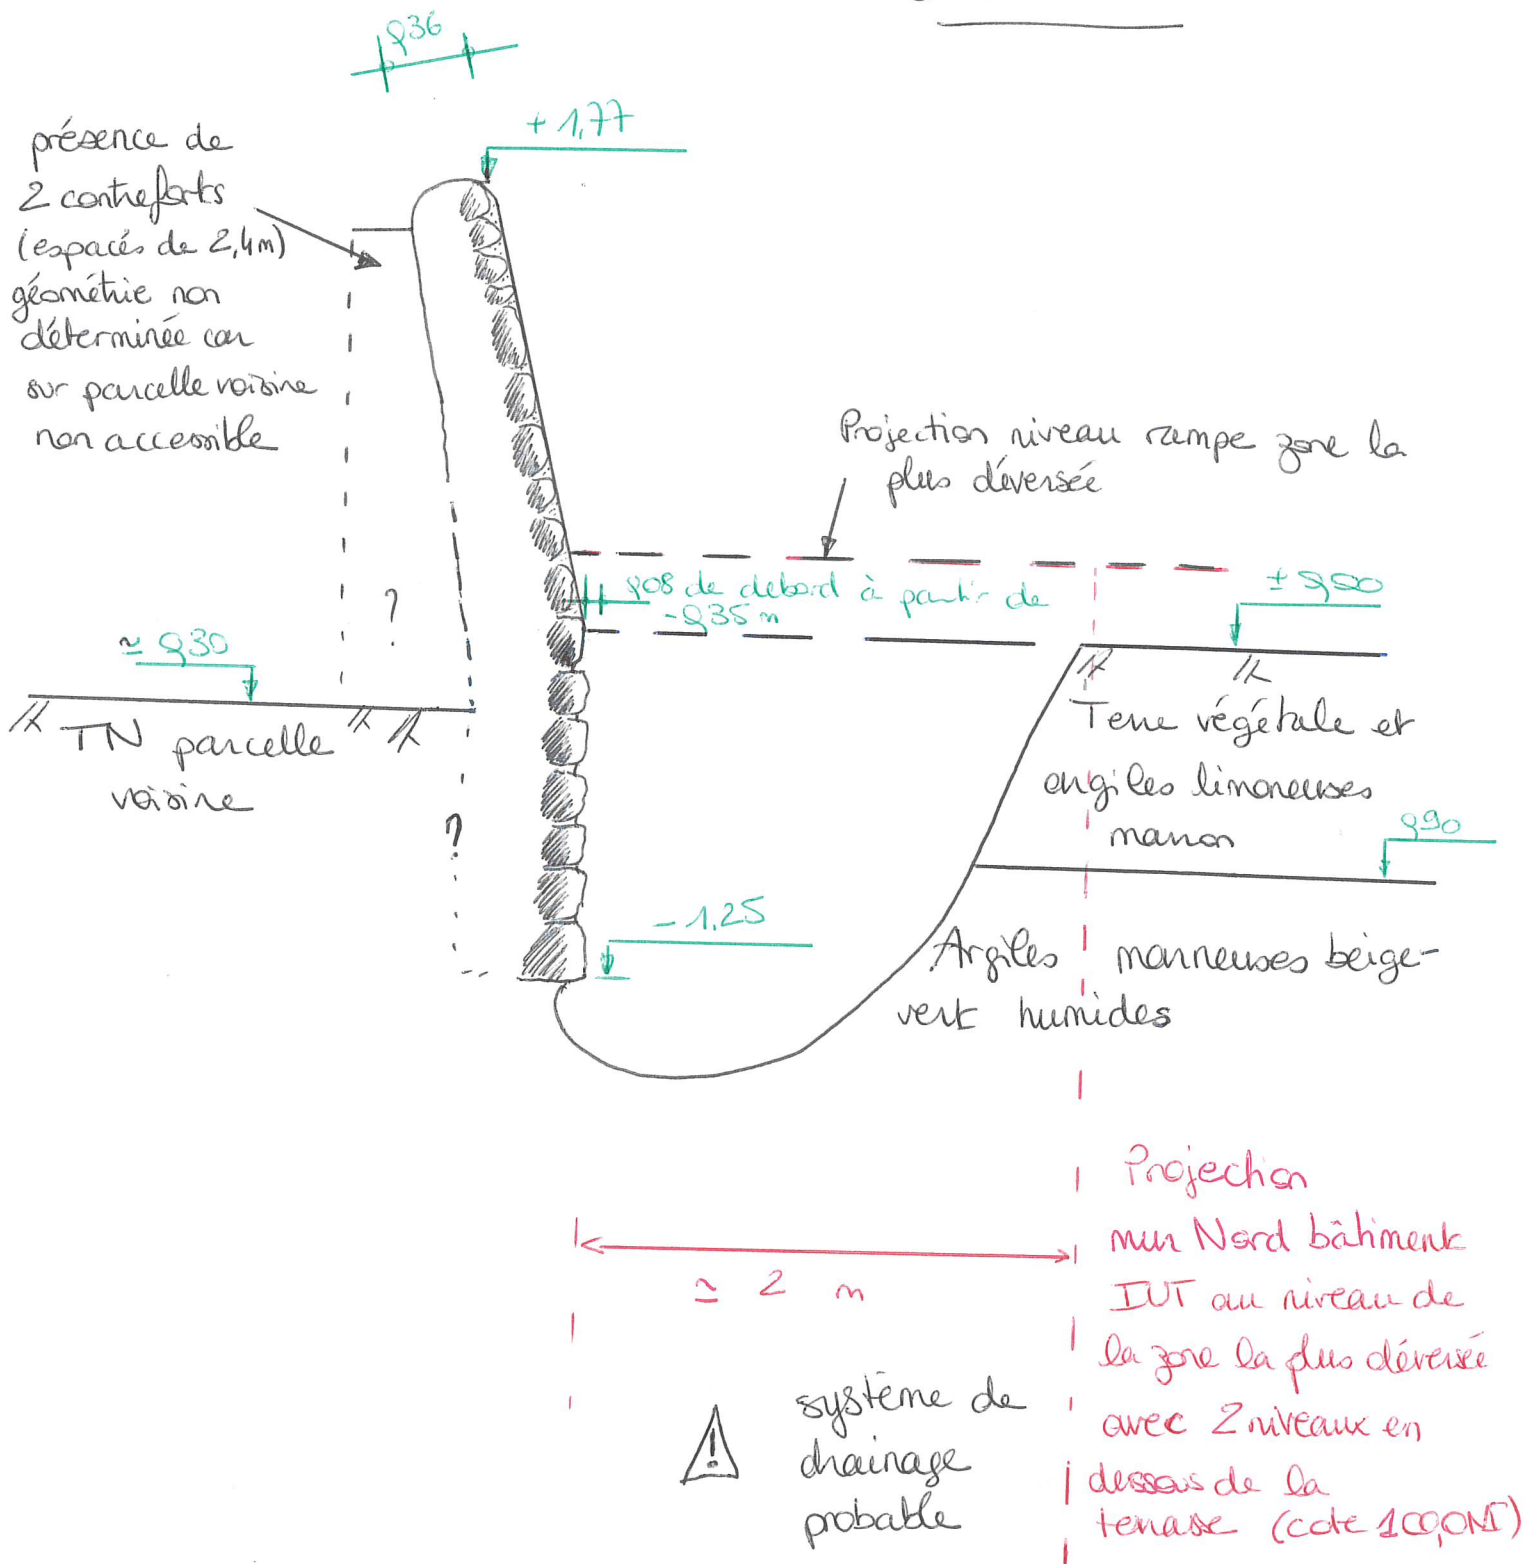 0,36
+ 1,77
présence de
2 contreforts
(espacés de 2,4m)
géométrie non
déterminée car
sur parcelle voisine
non accessible
Projection niveau rampe zone la
plus déversée
0,08 de debord à partir de
-0,35 m
± 0,00
?
≃ 0,30
TN parcelle
voisine
Terre végétale et
argiles limoneuses
marron
?
0,90
- 1,25
Argiles marneuses beige-
vert humides
≃ 2 m
Projection
mur Nord bâtiment
IUT au niveau de
la zone la plus déversée
avec 2 niveaux en
dessous de la
terrasse (cote 100,0NT)
! système de
drainage
probable